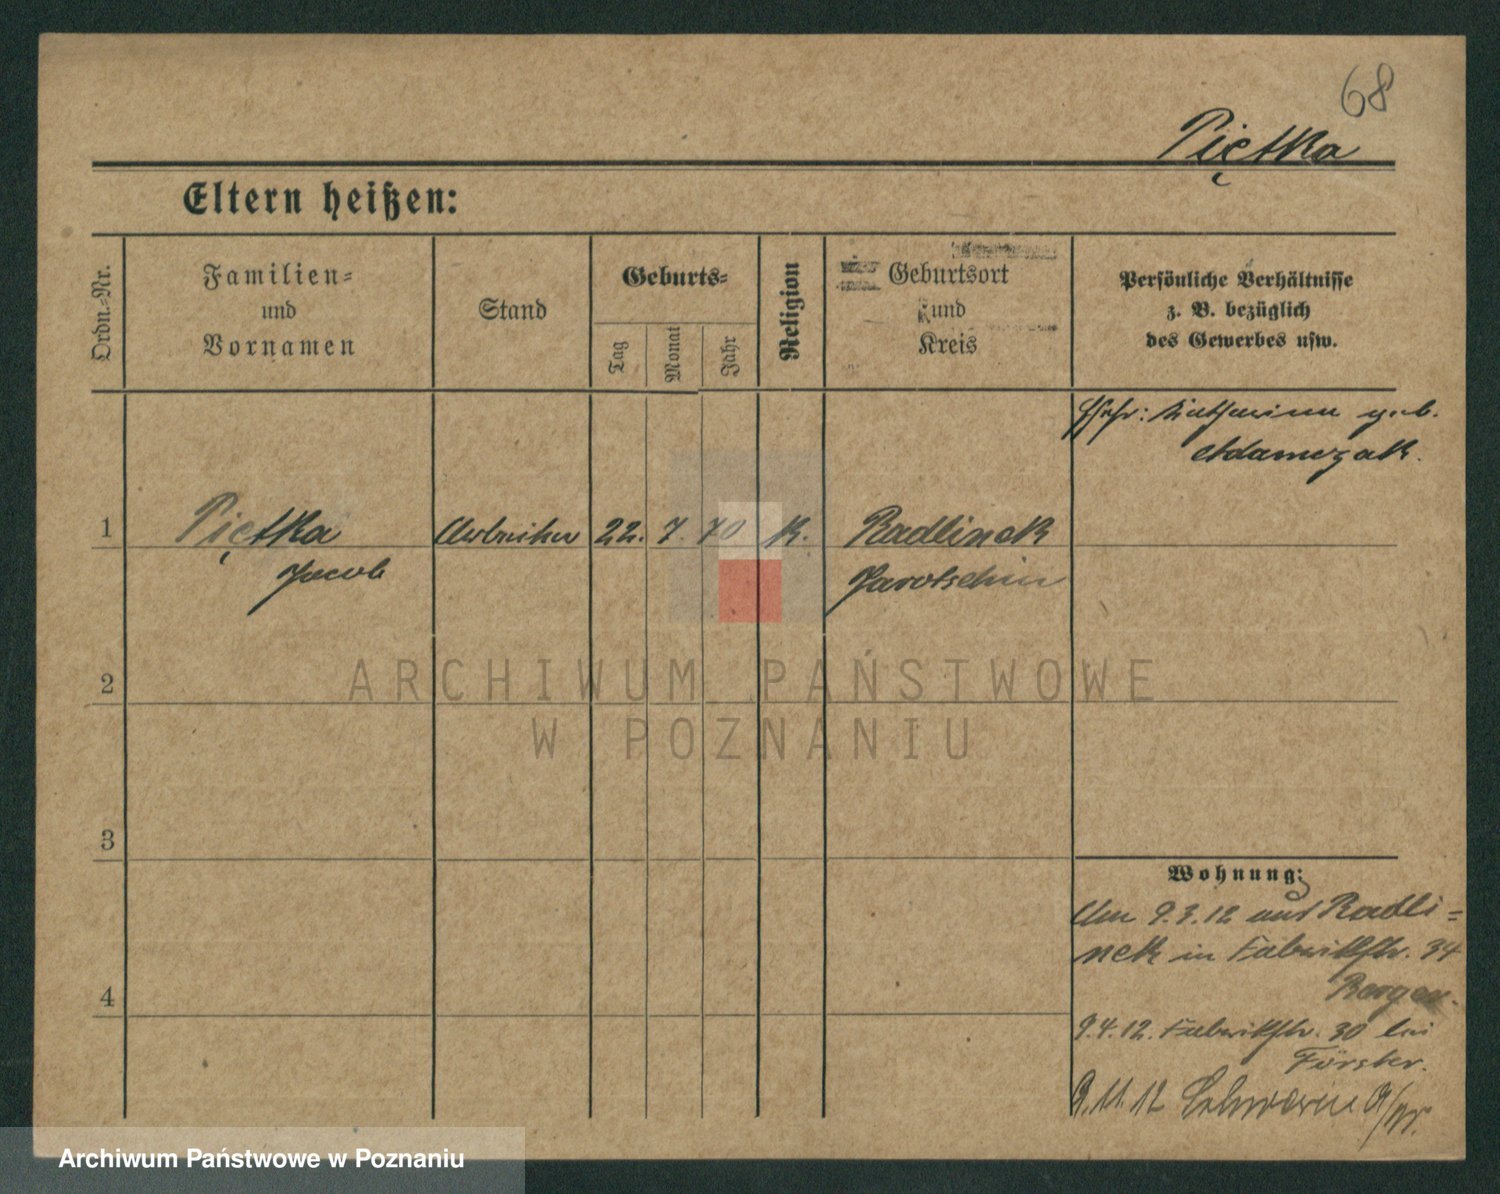 68
Piętka
Eltern heißen:
Ordn.-Nr.
Familien-
und
Vornamen
Stand
Geburts-
Tag
Monat
Jahr
Religion
Geburtsort
und
Kreis
Persönliche Verhältnisse
z. B. bezüglich
des Gewerbes usw.
Ehefr: Katharina geb.
Adamczak.
1 Piętka Arbeiter 22. 7. 70 k. Radlinek
Jacob Jarotschin
2
3
4
Wohnung:
Am 9.3.12 aus Radli=
nek in Fabrikstr. 34
9.4.12. Fabrikstr. 30 bei
Förster.
9.11.12 Schwerin a/W.
ARCHIWUM PAŃSTWOWE
W POZNANIU
Archiwum Państwowe w Poznaniu